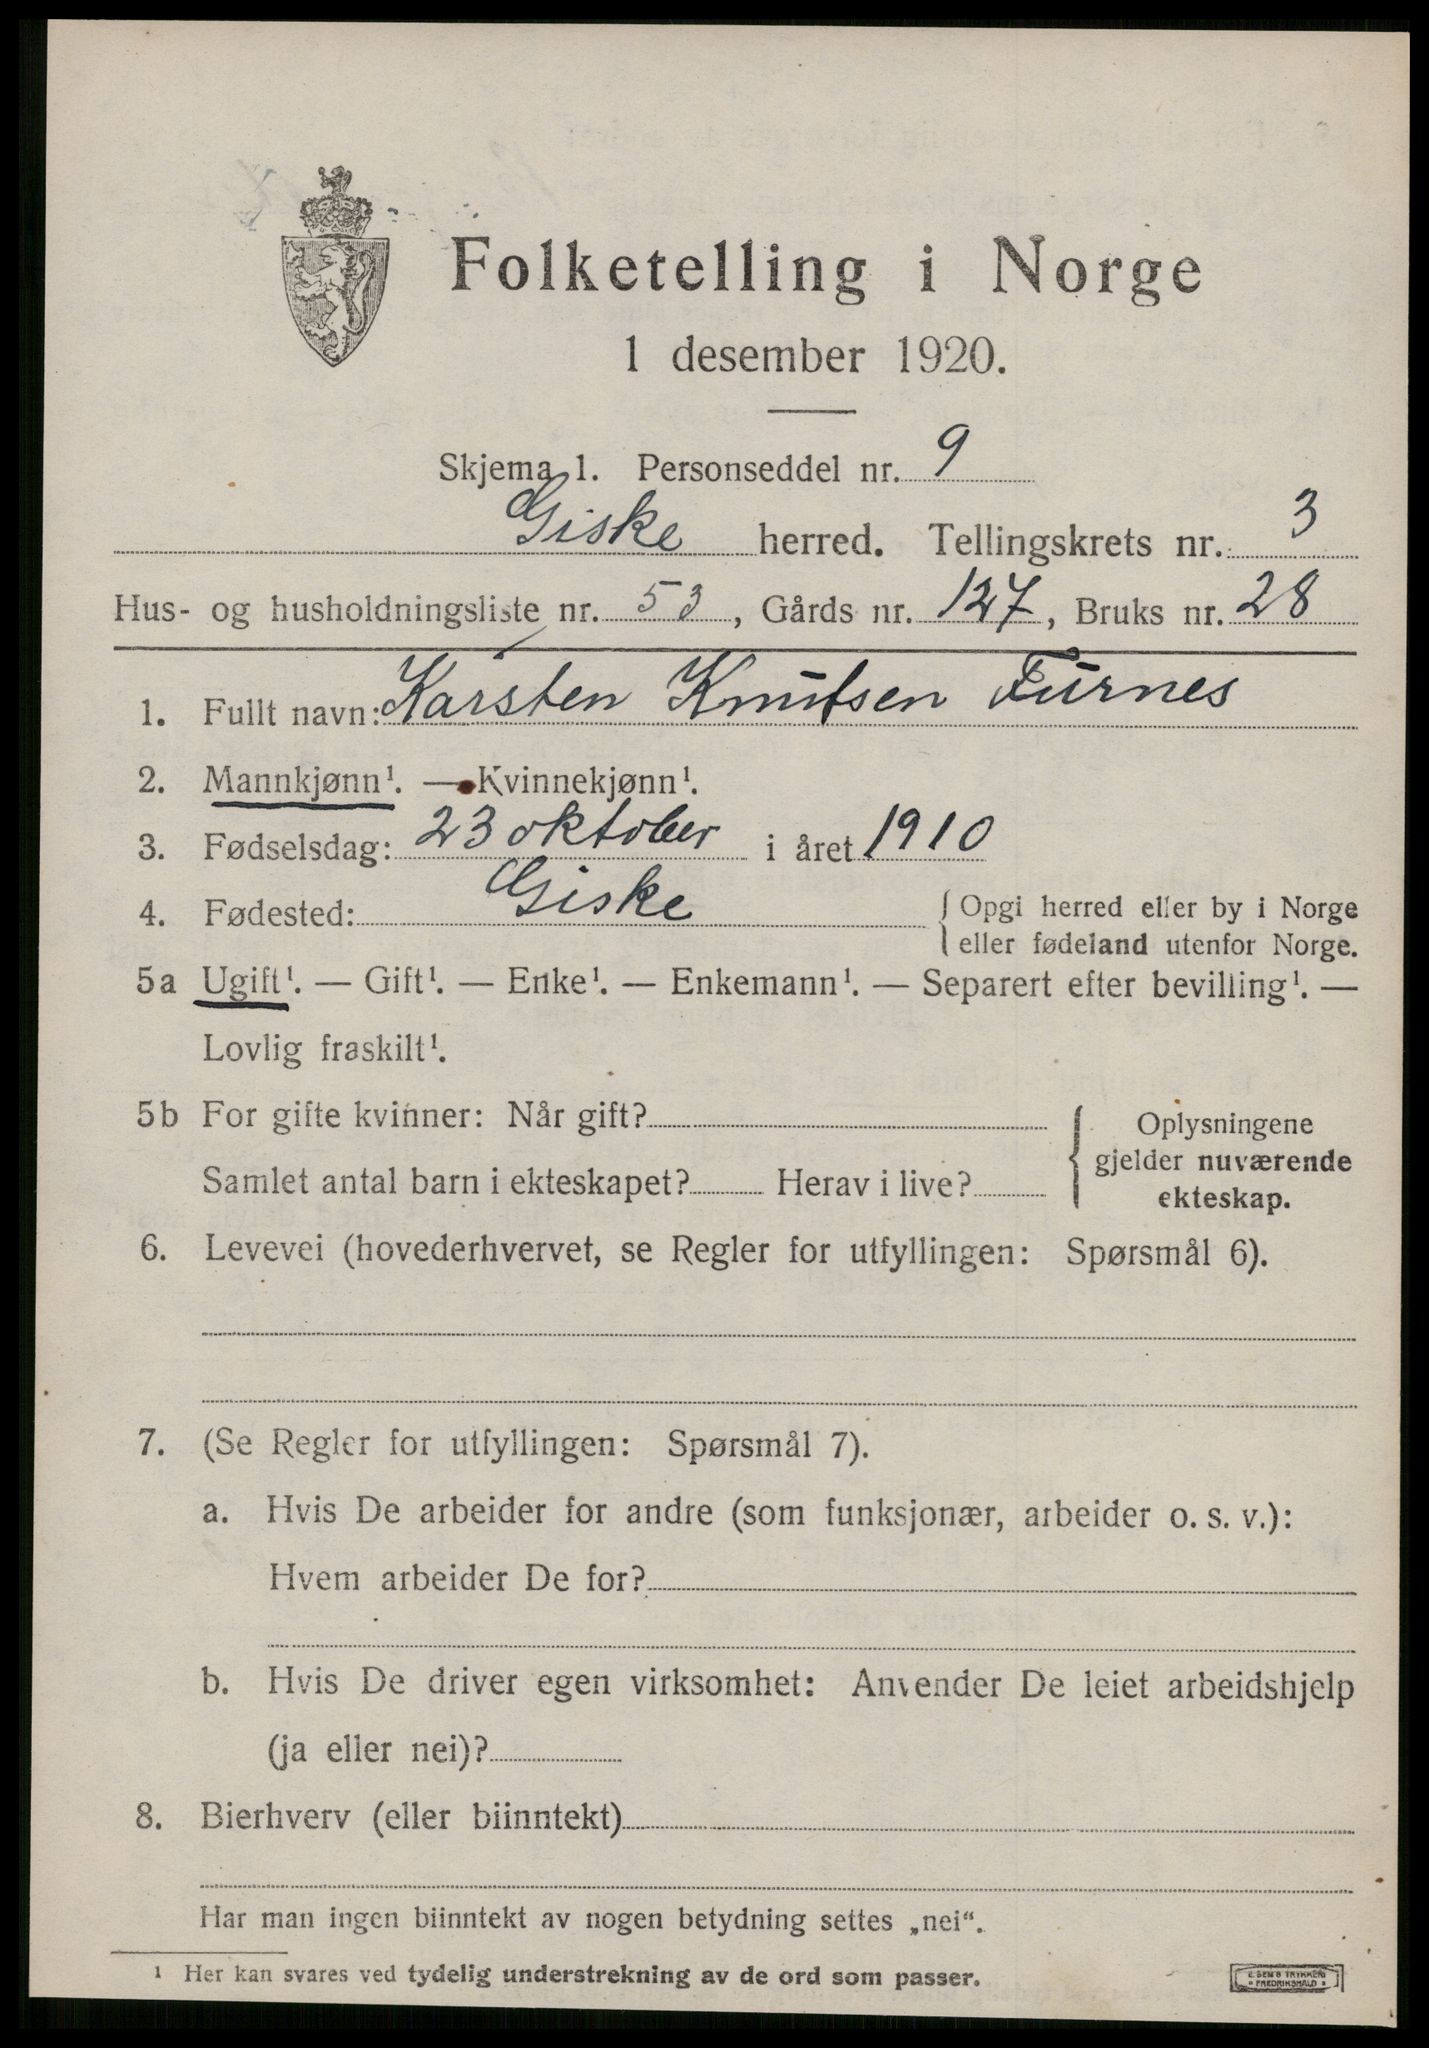 Folketelling i Norge
1 desember 1920.
Skjema 1. Personseddel nr. 9
Giske herred. Tellingskrets nr. 3
Hus- og husholdningsliste nr. 53, Gårds nr. 127, Bruks nr. 28
1. Fullt navn: Karsten Knutsen Furnes
2. Mannkjønn¹. — Kvinnekjønn¹.
3. Fødselsdag: 23 oktober i året 1910
4. Fødested: Giske { Opgi herred eller by i Norge
eller fødeland utenfor Norge.
5a Ugift¹. — Gift¹. — Enke¹. — Enkemann¹. — Separert efter bevilling¹. —
Lovlig fraskilt¹.
5b For gifte kvinner: Når gift? { Oplysningene
gjelder nuværende
Samlet antal barn i ekteskapet? Herav i live? ekteskap.
6. Levevei (hovederhvervet, se Regler for utfyllingen: Spørsmål 6).
7. (Se Regler for utfyllingen: Spørsmål 7).
a. Hvis De arbeider for andre (som funksjonær, arbeider o. s. v.):
Hvem arbeider De for?
b. Hvis De driver egen virksomhet: Anvender De leiet arbeidshjelp
(ja eller nei)?
8. Bierhverv (eller biinntekt)
Har man ingen biinntekt av nogen betydning settes „nei“.
¹ Her kan svares ved tydelig understrekning av de ord som passer.
E. SEM'S TRYKKERI
FREDRIKSHALD